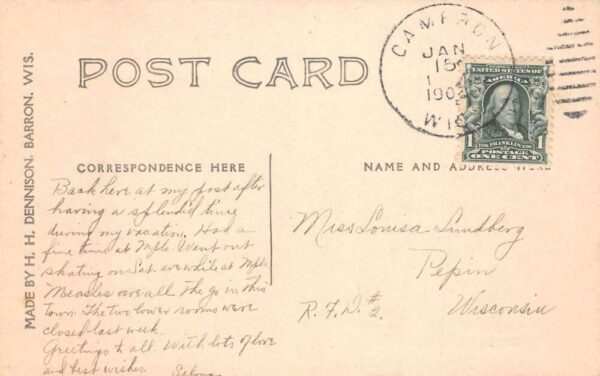 POST CARD
CAMERON
JAN
15
190
WIS
UNITED STATES OF
AMERICA
1 FRANKLIN 1
POSTAGE
ONE CENT
MADE BY H. H. DENNISON. BARRON, WIS.
CORRESPONDENCE HERE
Back here at my post after
having a splendid time
during my vacation. Had a
fine time at Mpls. Went out
skating on Sat. eve whilst at Mpls.
Measles are all the go in this
town. The two lower rooms were
closed last week.
Greetings to all. With lots of love
and best wishes. Selma
NAME AND ADDRESS HERE
Miss Louisa Lundberg
Pepin
R.F.D. #2. Wisconsin